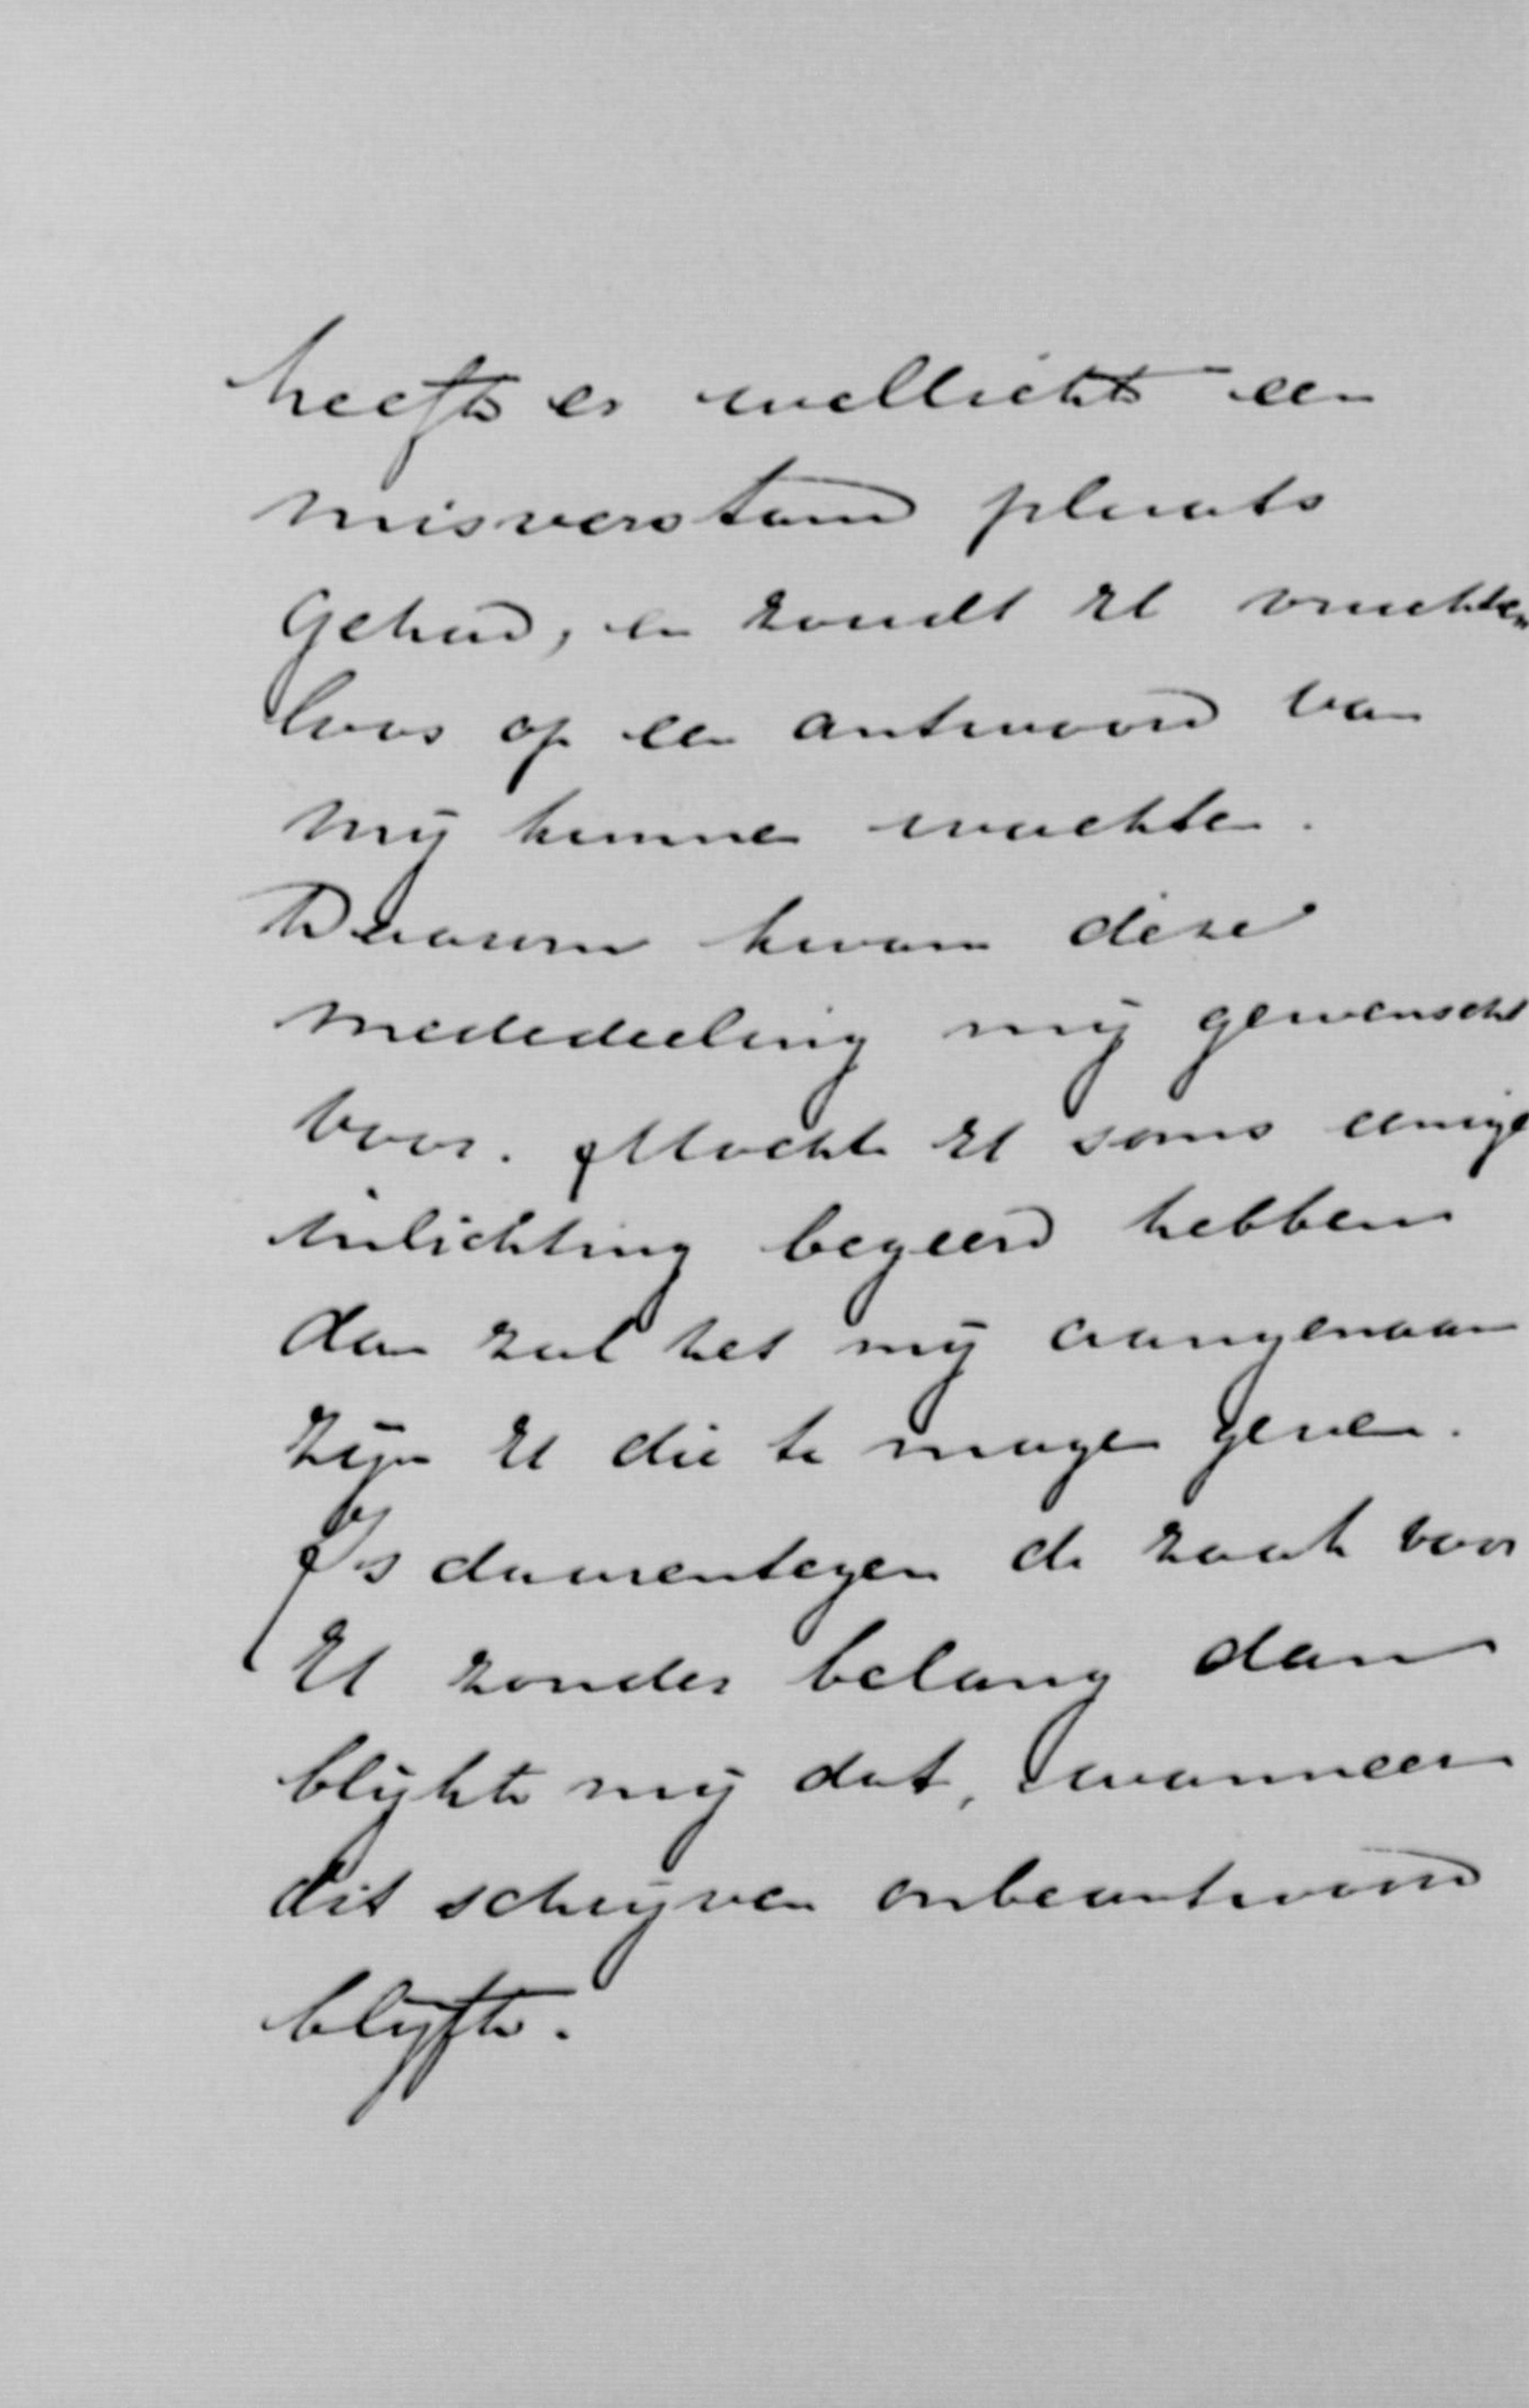 heeft er wellicht een
misverstand plaats
gehad, en zoudt U vruchten
loos op een antwoord van
mij kunnen wachten.
Daarom kwam deze
mededeeling mij gewenscht
voor. Mocht U soms eenige
inlichting begeerd hebben
dan zal het mij aangenaam
zijn U die te mogen geven.
Is daarentegen de zaak voor
U zonder belang dan
blijkt mij dat, wanneer
dit schrijven onbeantwoord
blijft.